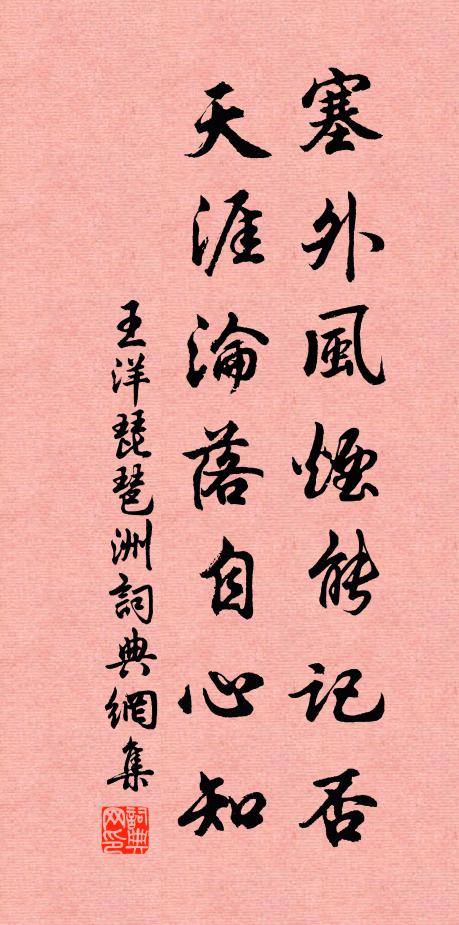 塞外風煙能記否
天涯淪落自心知
王洋琵琶洲詞典網集
詞典网印